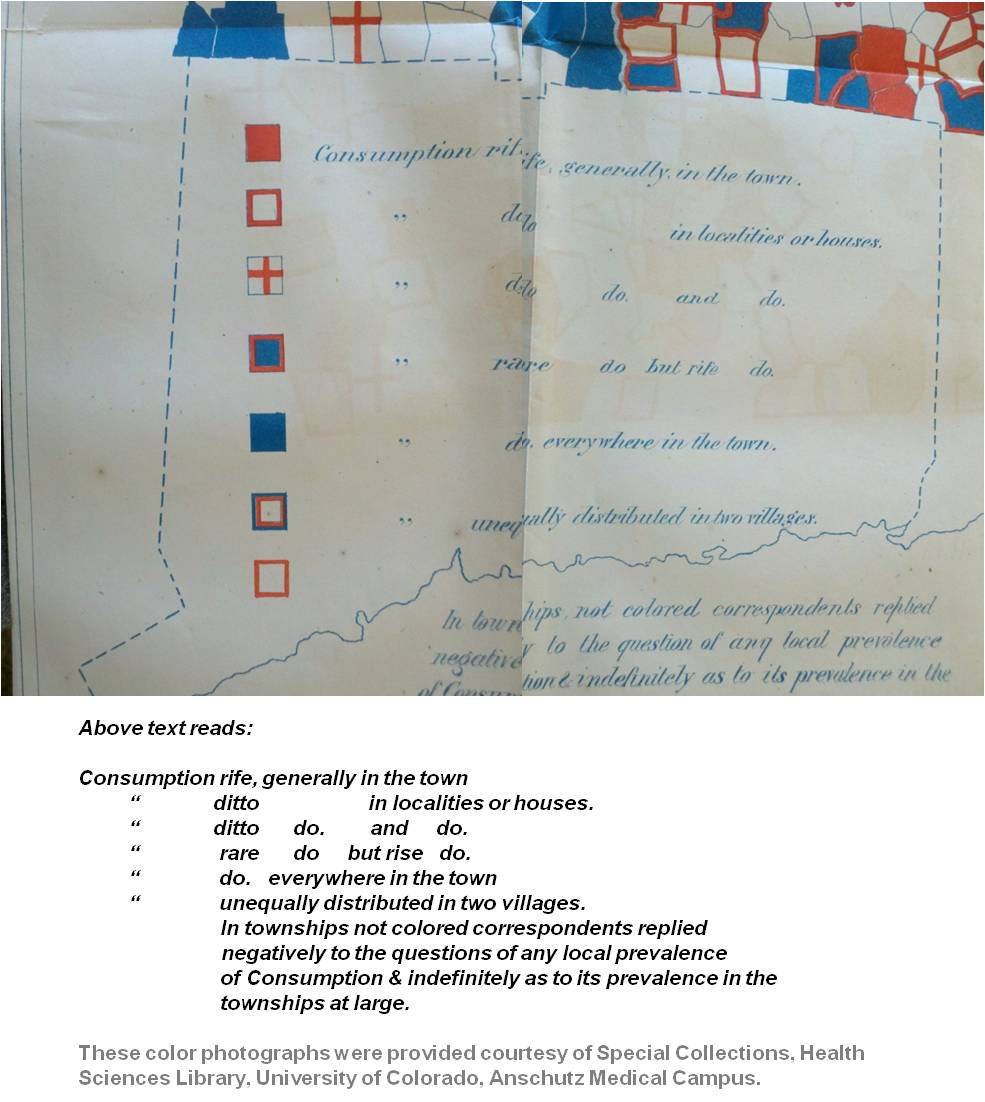 Consumption rife, generally, in the town.
„ do in localities or houses.
„ do do. and do.
„ rare do but rife do.
„ do. everywhere in the town.
„ unequally distributed in two villages.
In townships, not colored correspondents replied
negatively to the question of any local prevalence
of Consumption & indefinitely as to its prevalence in the
Above text reads:
Consumption rife, generally in the town
“ ditto in localities or houses.
“ ditto do. and do.
“ rare do but rise do.
“ do. everywhere in the town
“ unequally distributed in two villages.
In townships not colored correspondents replied
negatively to the questions of any local prevalence
of Consumption & indefinitely as to its prevalence in the
townships at large.
These color photographs were provided courtesy of Special Collections, Health
Sciences Library, University of Colorado, Anschutz Medical Campus.